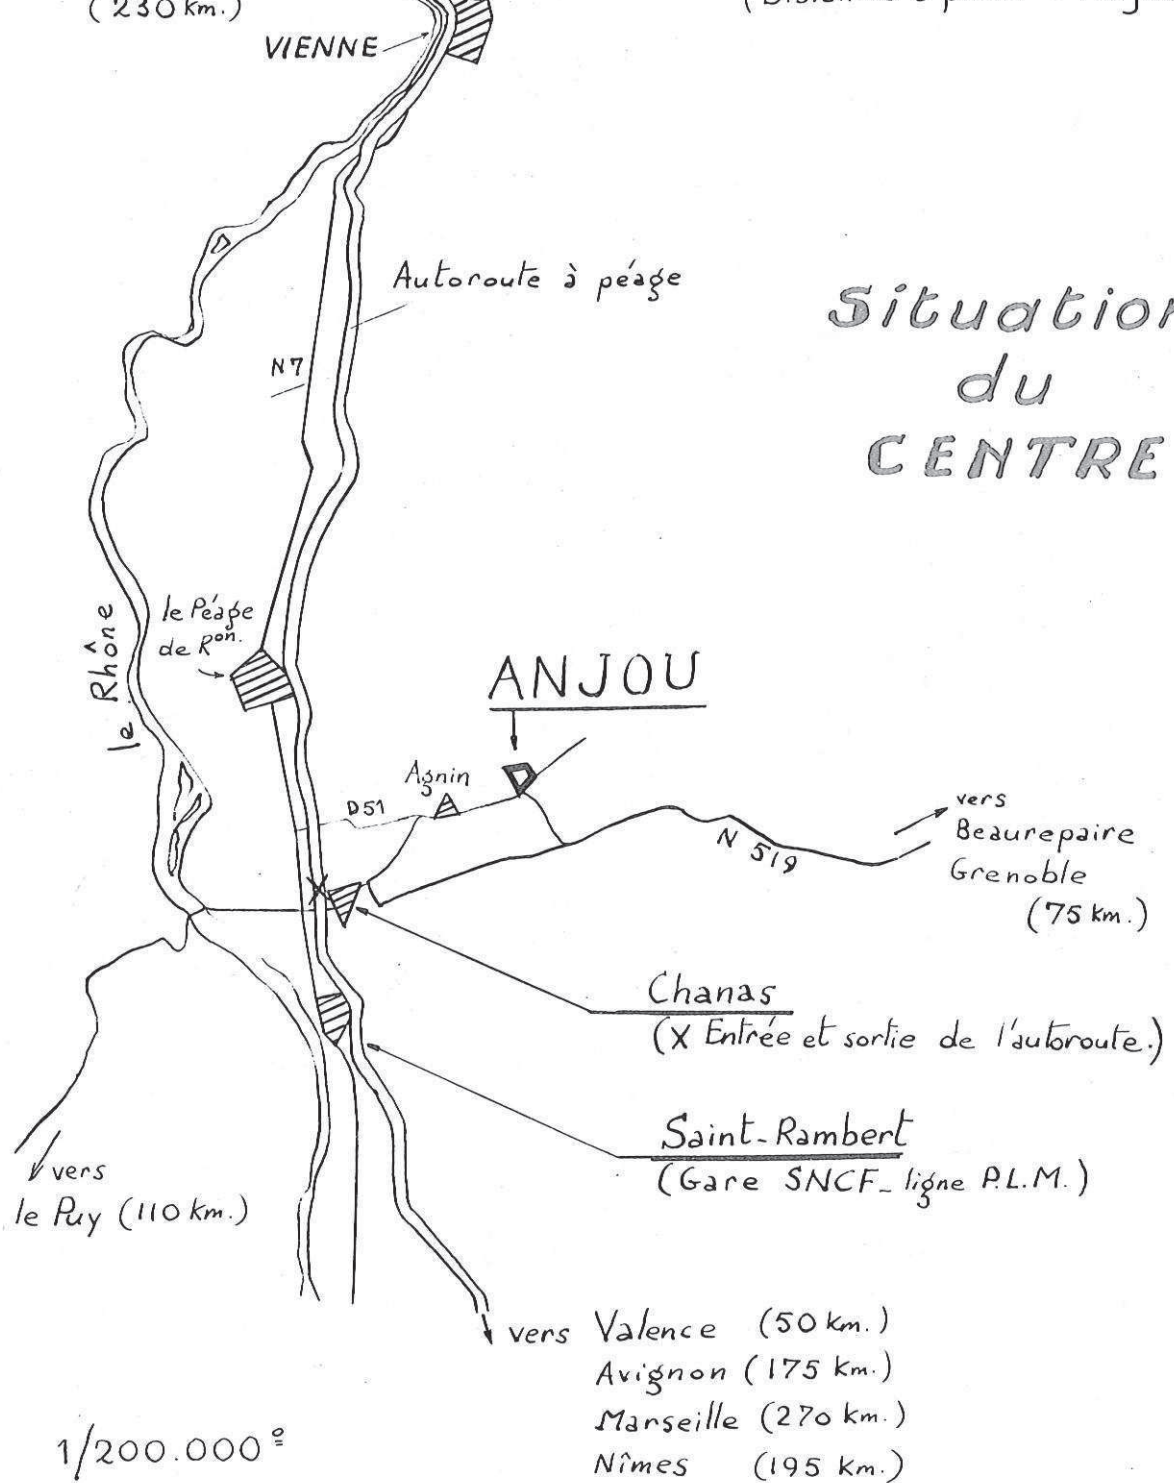 (230 km.)
VIENNE
Autoroute à péage
Situation
du
CENTRE
N7
le Péage
de Ron.
le Rhône
ANJOU
Agnin
D51
N 519
vers
Beaurepaire
Grenoble
(75 km.)
Chanas
(X Entrée et sortie de l'autoroute.)
Saint-Rambert
(Gare SNCF_ ligne P.L.M.)
vers
le Puy (110 km.)
vers Valence (50 km.)
Avignon (175 km.)
Marseille (270 km.)
Nîmes (195 km.)
1/200.000º